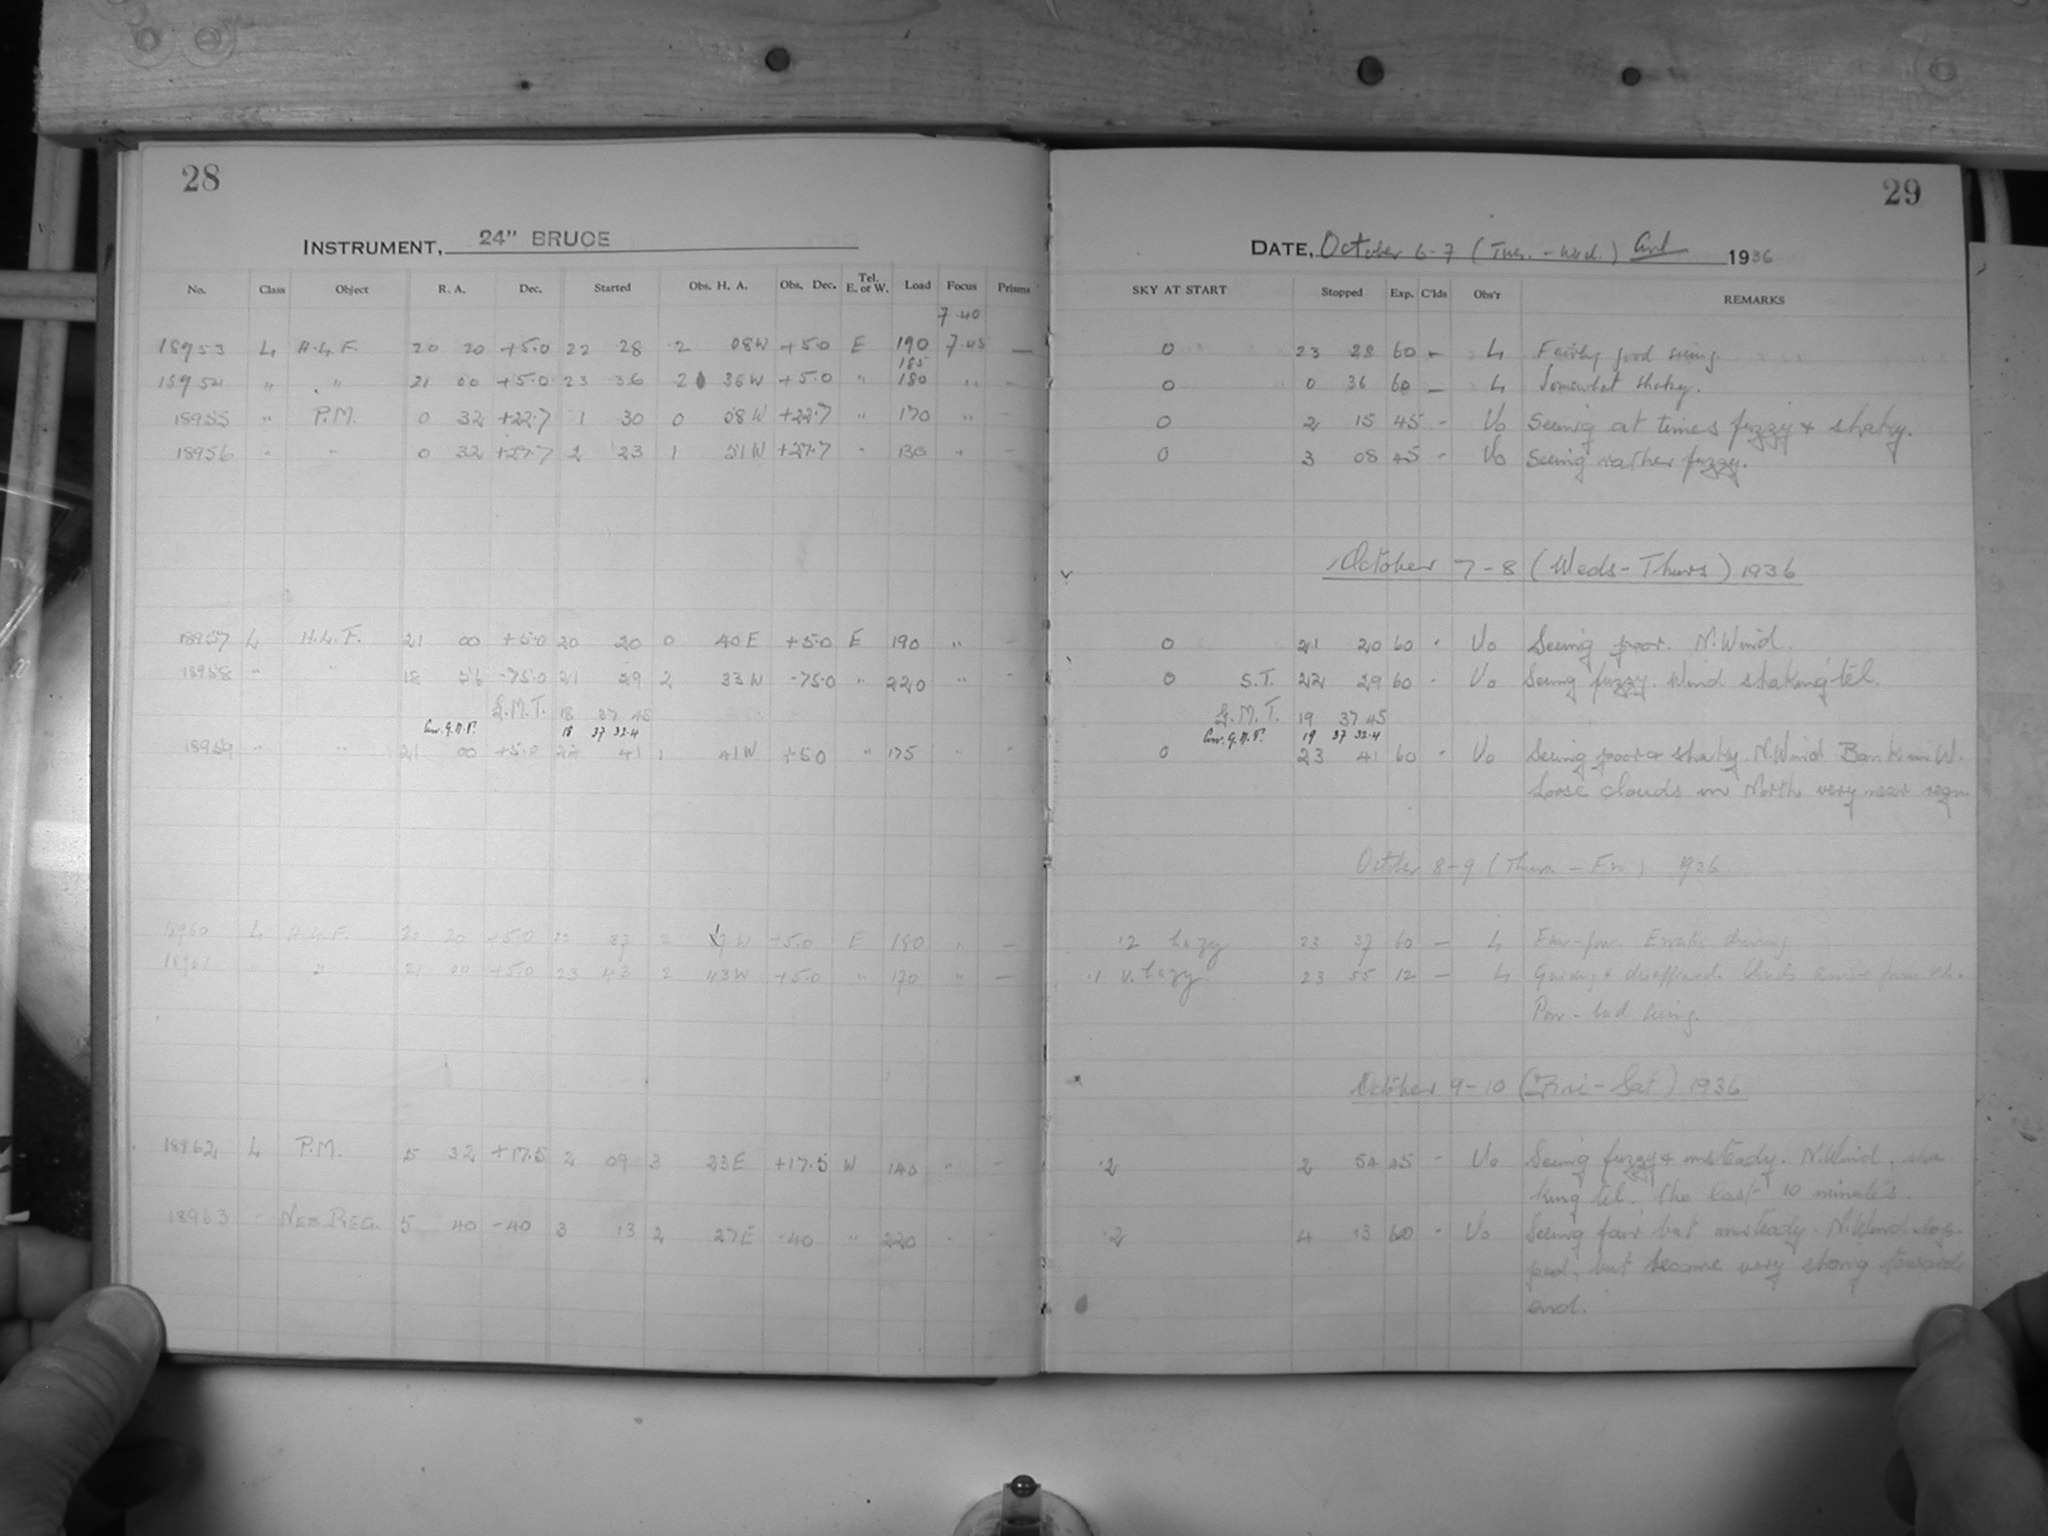 28
INSTRUMENT, 24" BRUCE
No. Class Object R. A. Dec. Started Obs. H. A. Obs. Dec. Tel. E. or W. Load Focus Prisms
7.40
18953 L H.L.F. 20 20 +5.0 22 28 2 08W +5.0 E 190 7.45 —
185
18954 " " 21 00 +5.0 23 36 2 36W +5.0 " 180 " —
18955 " P.M. 0 32 +22.7 1 30 0 58W +22.7 " 170 " —
18956 " " 0 32 +27.7 2 23 1 51W +27.7 " 130 " —
18957 L H.L.F. 21 00 +5.0 20 20 0 40E +5.0 E 190 " —
18958 " " 18 56 -75.0 21 29 2 33W -75.0 " 220 " —
G.M.T. 18 37 45
Corr. G.M.T. 18 37 32.4
18959 " " 21 00 +5.0 22 41 1 41W +5.0 " 175 "
18960 L H.L.F. 20 20 +5.0 22 37 2 17W +5.0 E 180 " —
18961 " " 21 00 +5.0 23 43 2 43W +5.0 " 170 " —
18962 L P.M. 5 32 +17.5 2 09 3 23E +17.5 W 140 " —
18963 " NEB. REG. 5 40 -40 3 13 2 27E -40 " 220 " —
29
DATE, October 6-7 (Tues. - Wed.) 1936
SKY AT START Stopped Exp. C'lds Obs'r REMARKS
0 23 28 60 — L Fairly good seeing.
0 0 36 60 — L Somewhat shaky.
0 2 15 45 - Vo Seeing at times fuzzy + shaky.
0 3 08 45 - Vo Seeing rather fuzzy.
October 7-8 (Weds-Thurs) 1936
0 21 20 60 - Vo Seeing poor. N. Wind.
0 S.T. 22 29 60 - Vo Seeing fuzzy. Wind shaking tel.
G.M.T. 19 37 45
Corr. G.M.T. 19 37 32.4
0 23 41 60 - Vo Seeing poor + shaky. N. Wind Bank in W.
Loose clouds in North very near
October 8-9 (Thurs - Fri) 1936
.2 hazy 23 37 60 — L Fair-poor. Erratic driving.
.1 v. hazy 23 55 12 — L
Poor-bad seeing.
October 9-10 (Fri-Sat) 1936
.2 2 54 45 - Vo Seeing fuzzy + unsteady. N. Wind, sha
king tel. the last 10 minutes.
.2 4 13 60 - Vo Seeing fair but unsteady. N. Wind
ped, but became very strong towards
end.